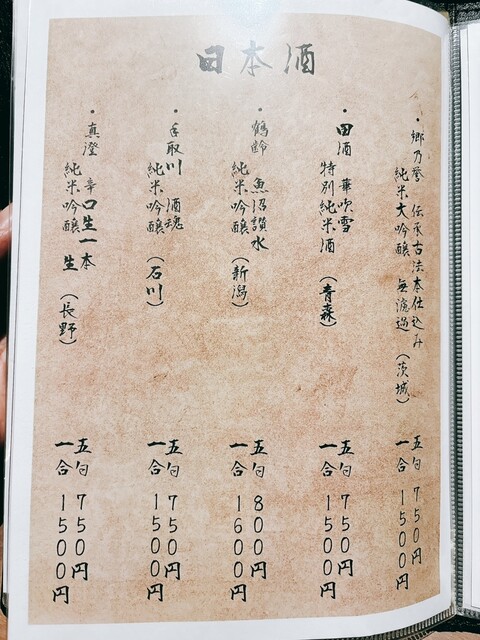 日本酒
・郷乃誉 伝承古法本仕込み
純米大吟醸 無濾過 (茨城)
五勺 750円
一合 1500円
・田酒 華吹雪
特別純米酒 (青森)
五勺 750円
一合 1500円
・鶴齢 魚沼讃水
純米吟醸 (新潟)
五勺 800円
一合 1600円
・手取川 酒魂
純米吟醸 (石川)
五勺 750円
一合 1500円
・真澄 辛口生一本
純米吟醸 生 (長野)
五勺 750円
一合 1500円